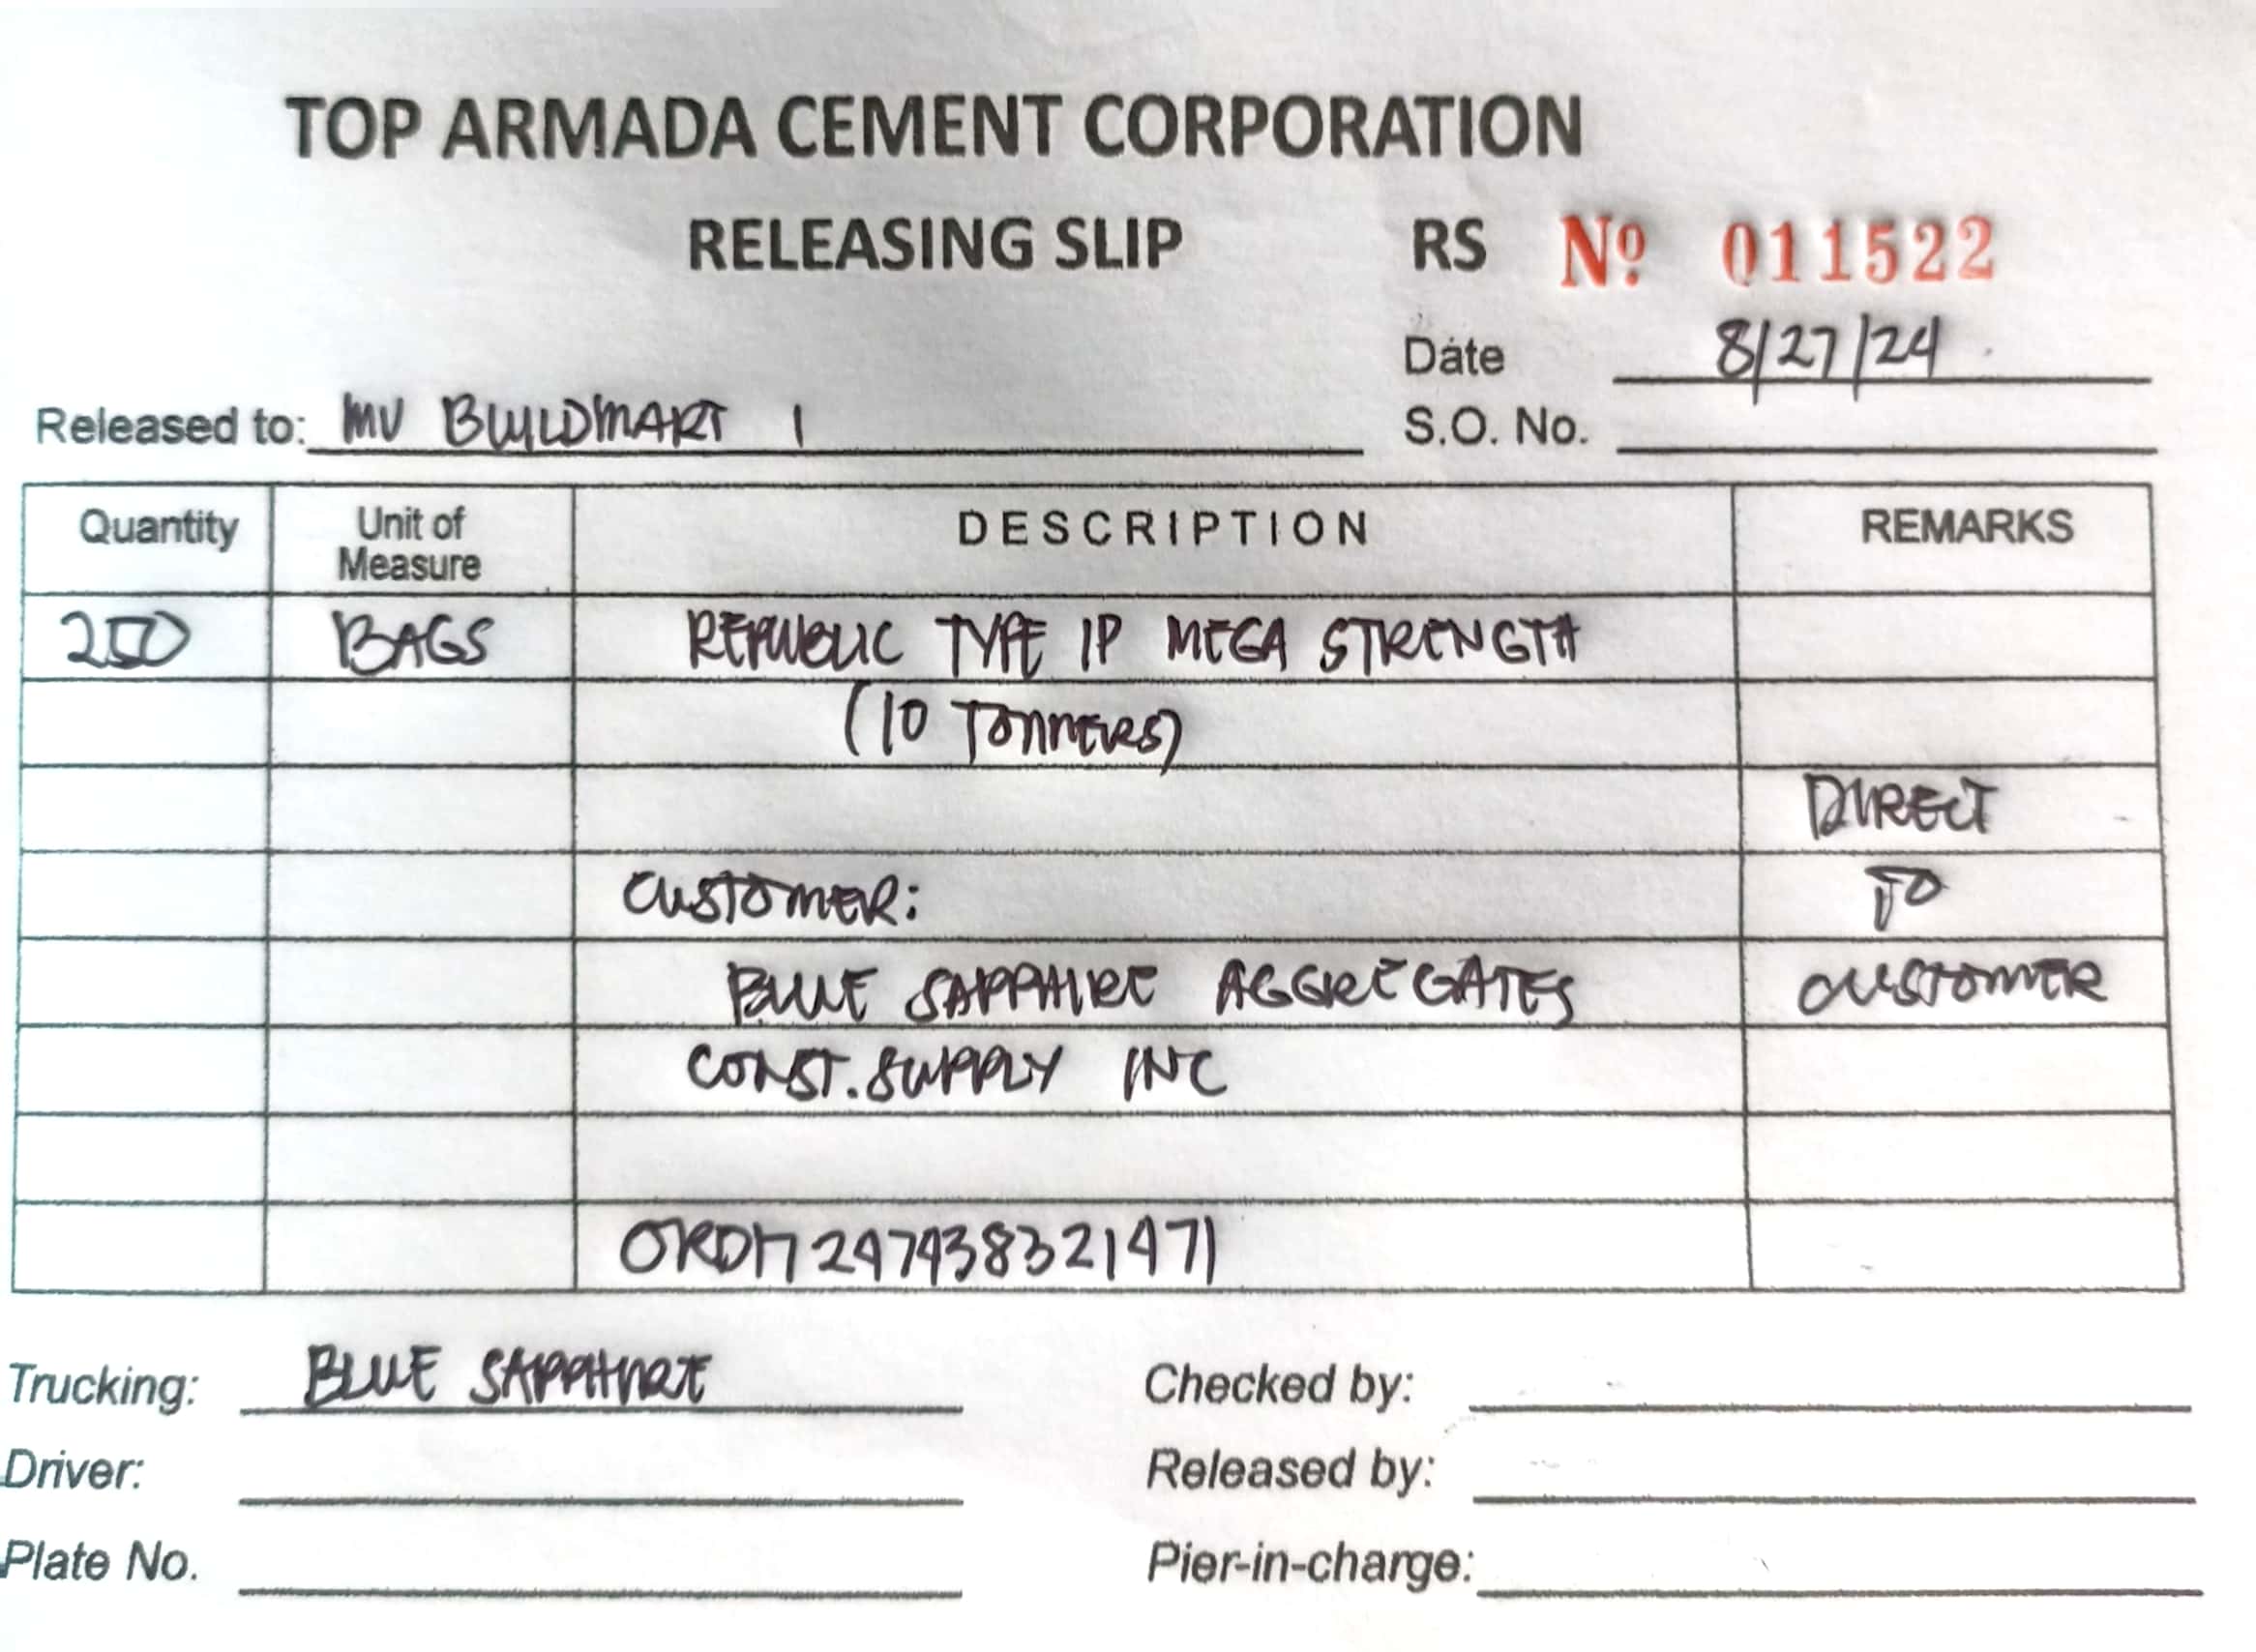 TOP ARMADA CEMENT CORPORATION
RELEASING SLIP RS Nº 011522
Date 8/27/24
Released to: MV BUILDMART 1 S.O. No.
Quantity Unit of Measure DESCRIPTION REMARKS
250 BAGS REPUBLIC TYPE 1P MEGA STRENGTH
(10 TONNERS)
DIRECT
CUSTOMER: TO
BLUE SAPPHIRE AGGREGATES CUSTOMER
CONST. SUPPLY INC
Trucking: BLUE SAPPHIRE Checked by:
Driver: Released by:
Plate No. Pier-in-charge: